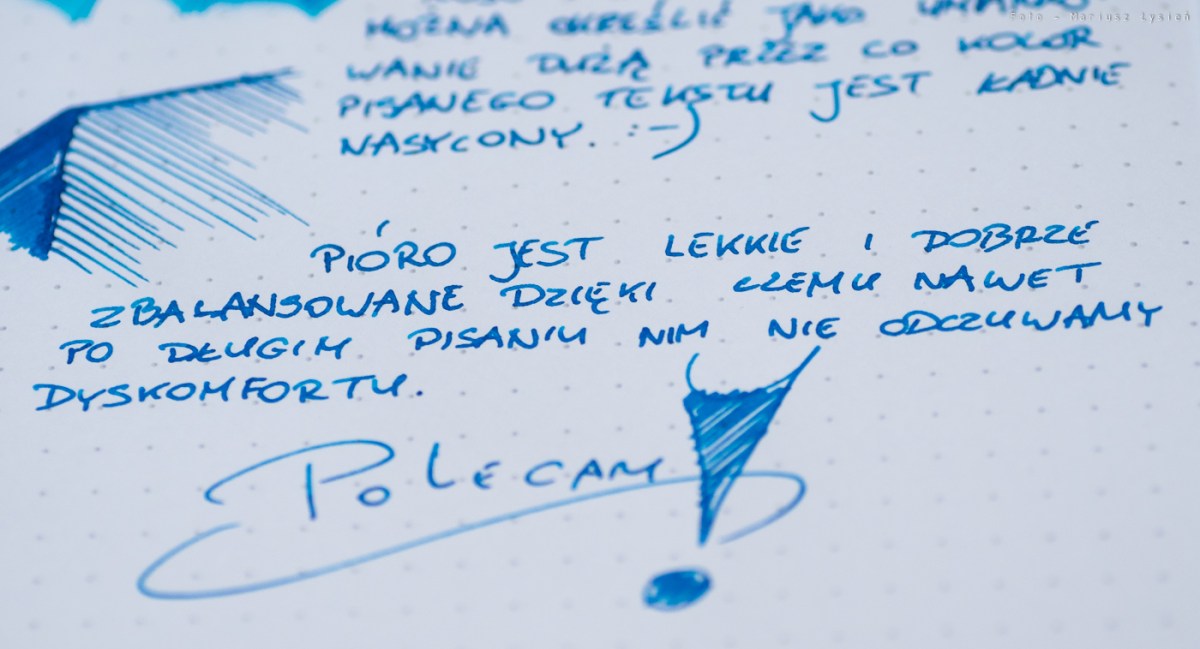 Foto - Mariusz Łysień
MOŻNA OKREŚLIĆ JAKO
WANIE DUŻĄ PRZEZ CO KOLOR
PISANEGO TEKSTU JEST ŁADNIE
NASYCONY. :-)
PIÓRO JEST LEKKIE I DOBRZE
ZBALANSOWANE DZIĘKI CZEMU NAWET
PO DŁUGIM PISANIU NIM NIE ODCZUWAMY
DYSKOMFORTU.
POLECAM!